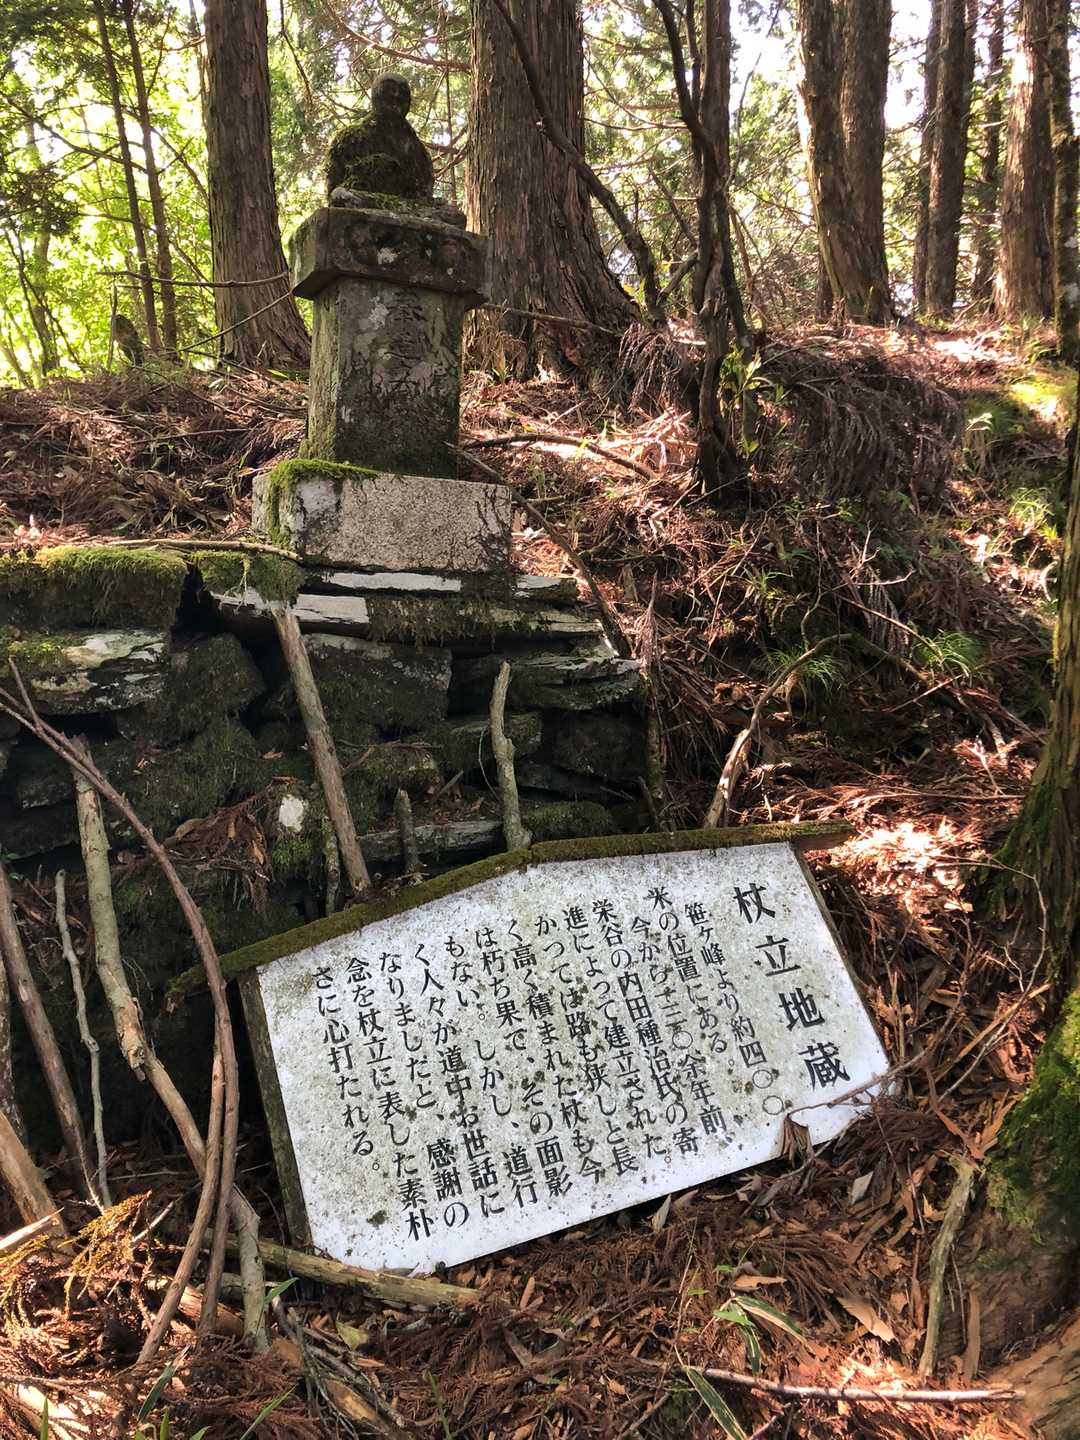 杖立地蔵
笹ヶ峰より約四〇〇
米の位置にある。
今から一三〇余年前、
栄谷の内田種治氏の寄
進によって建立された。
かつては路も狭しと長
く高く積まれた杖も今
は朽ち果て、その面影
もない。しかし、道行
く人々が道中お世話に
なりましたと、感謝の
念を杖立に表した素朴
さに心打たれる。